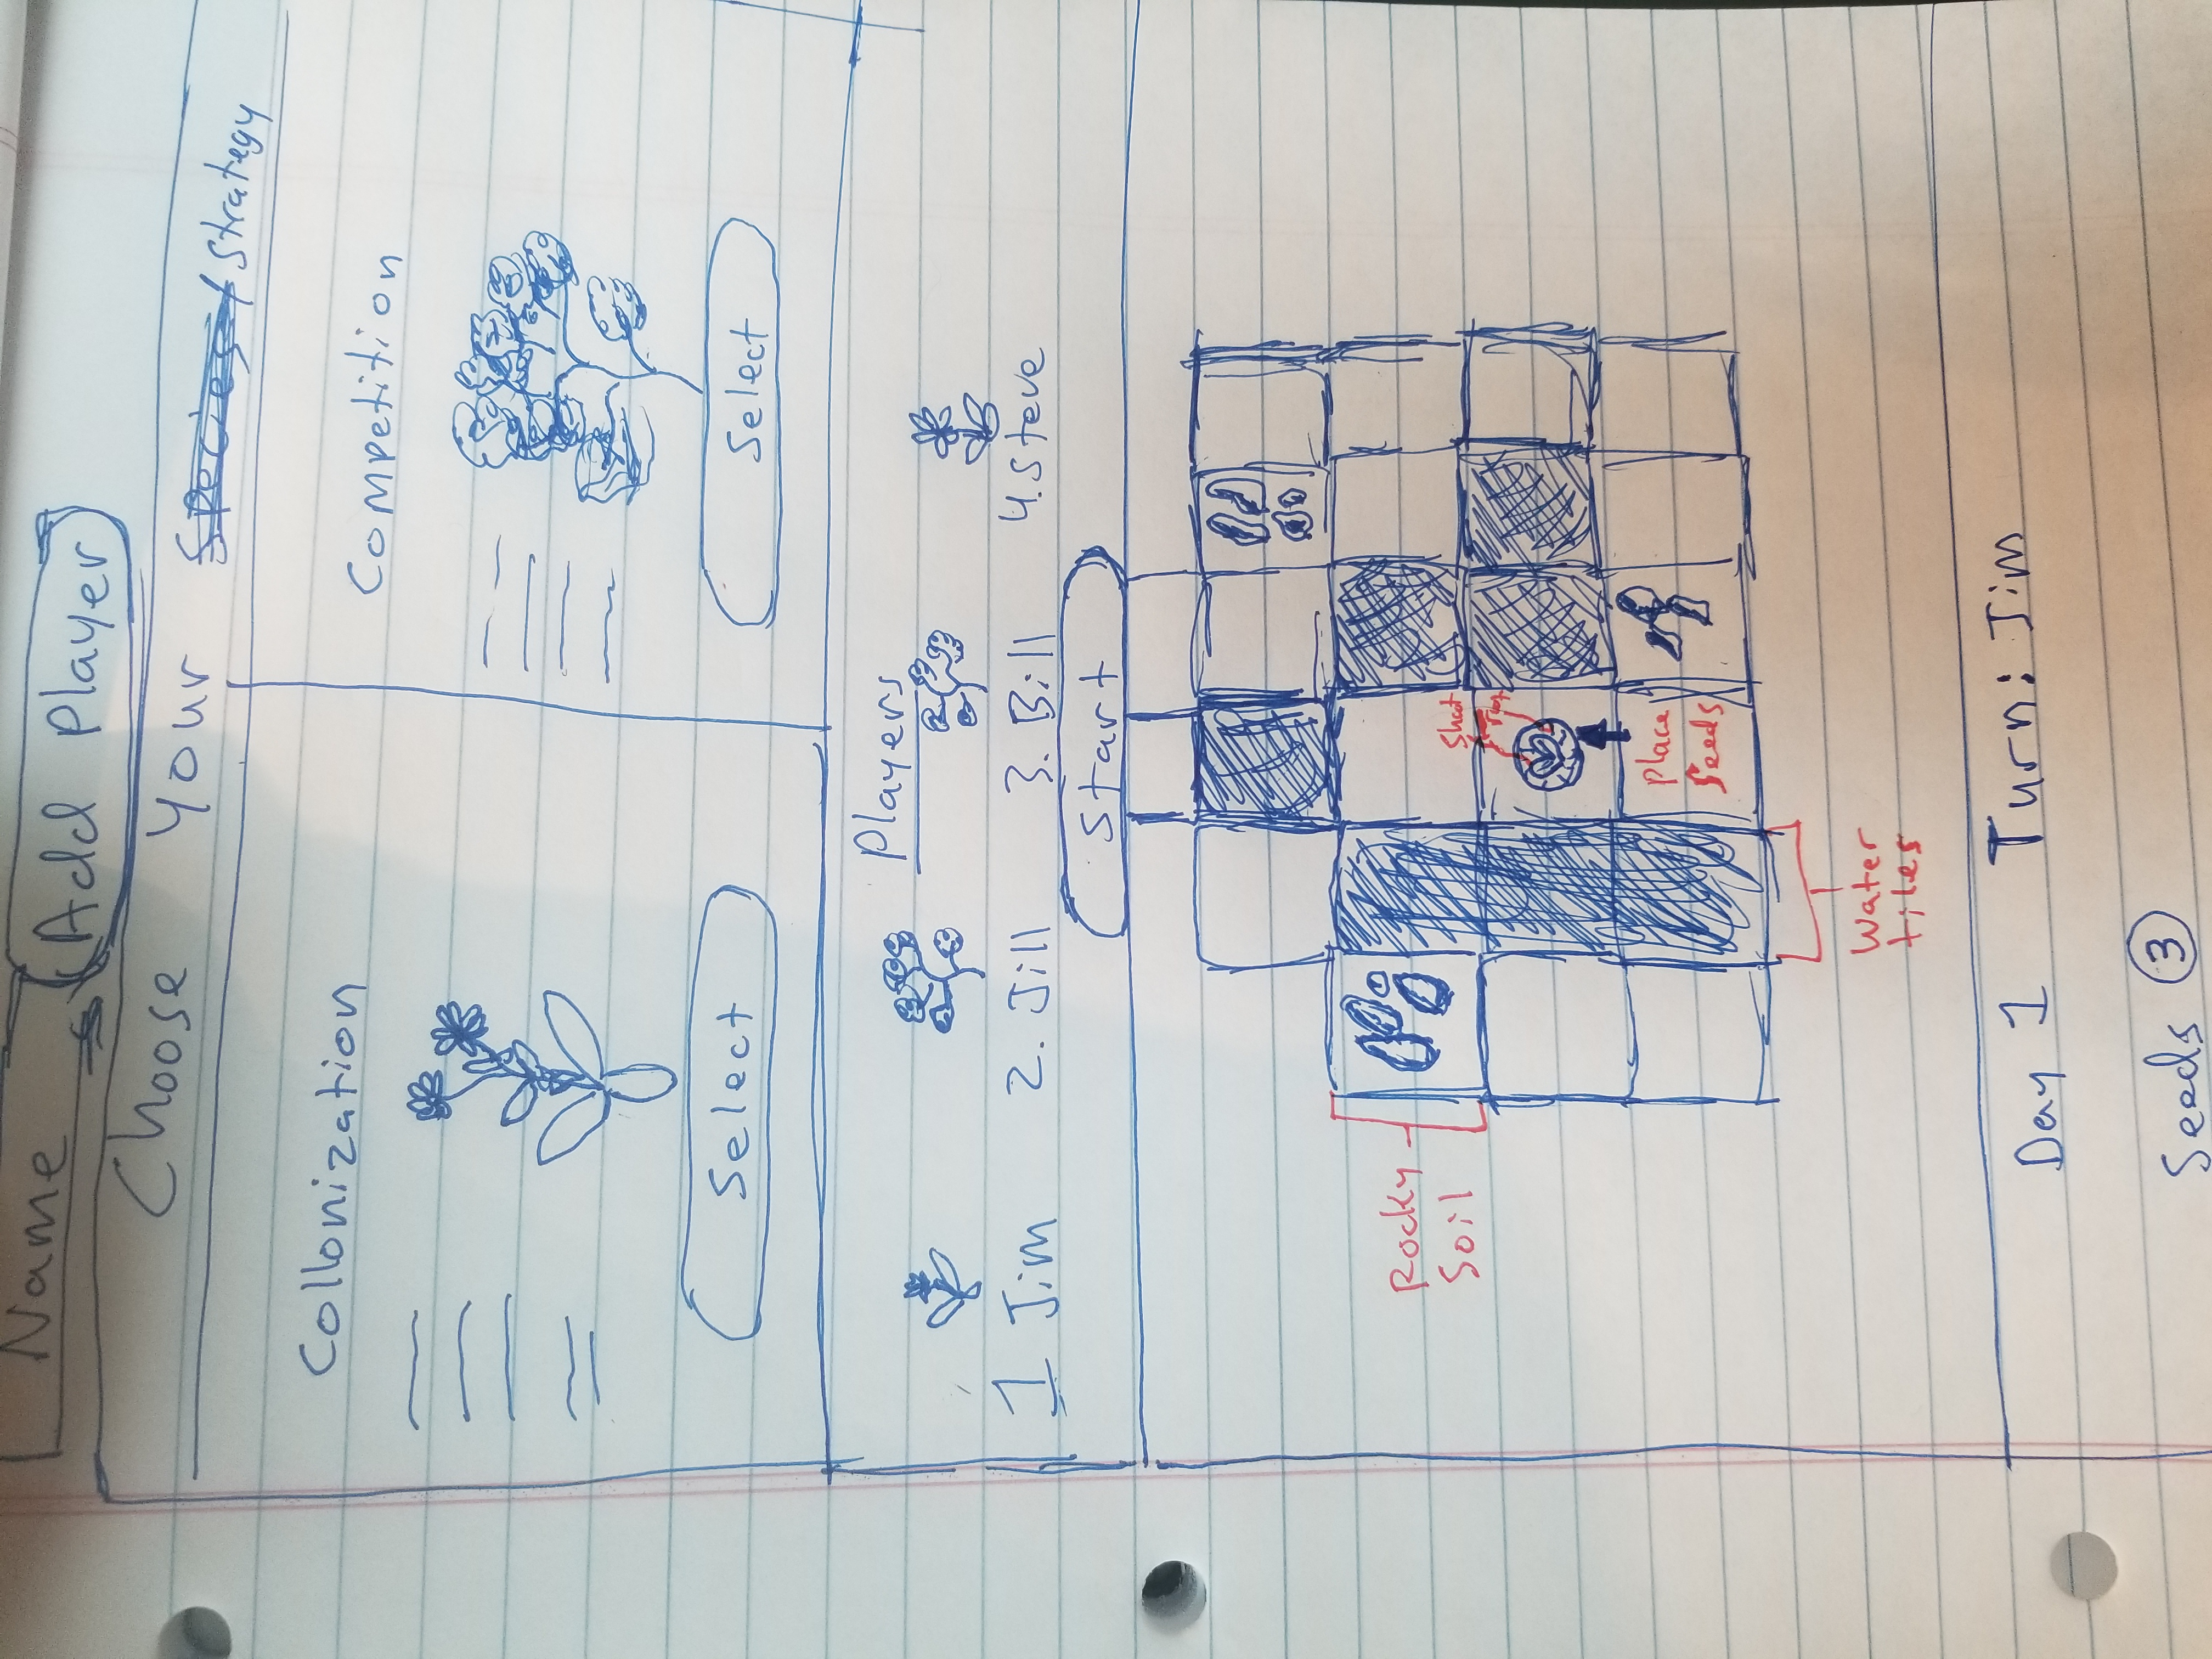 Name Add Player
Choose Your Species / Strategy
Collonization
Competition
Select
Select
Players
1 Jim 2. Jill 3. Bill 4. Steve
Start
Rocky
Soil
Shoot
root
Place
Seeds
Water
tiles
Day 1 Turn: Jim
Seeds 3